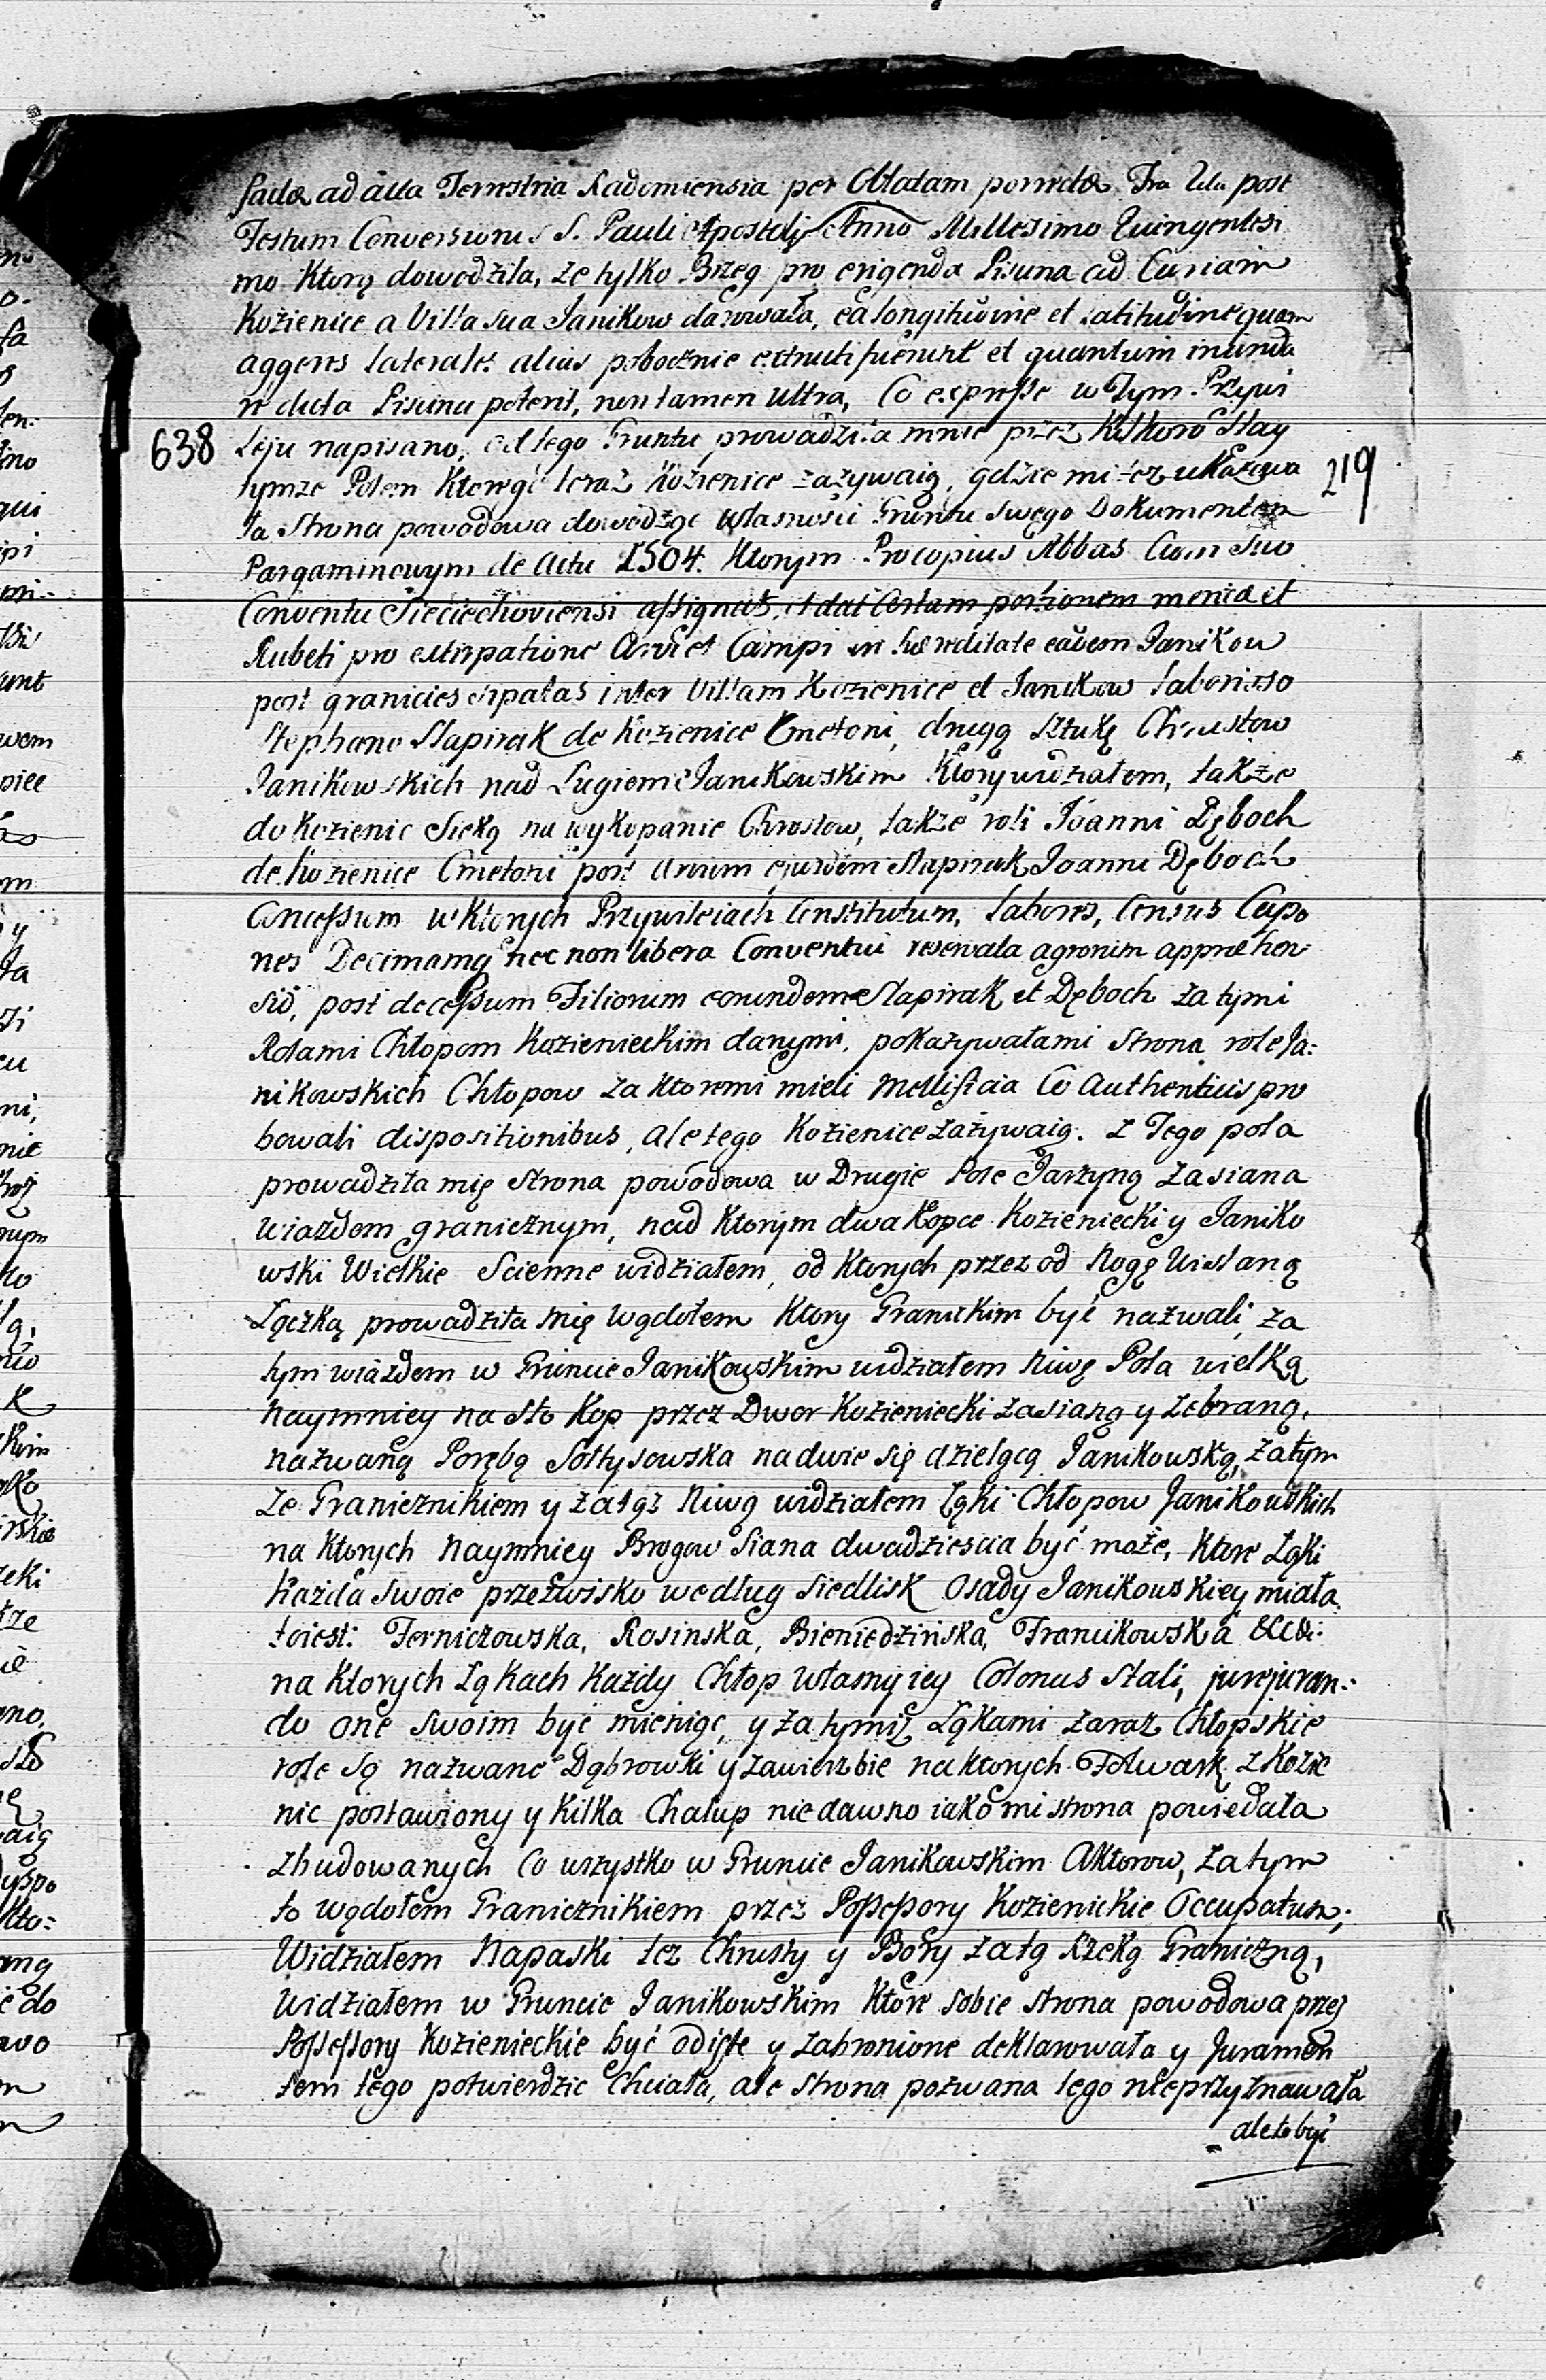 ad acta Terrestria Radomiensia per Oblatam porrectæ Fra 2da post
Festum Conversionis S. Pauli Apostoli Anno Millesimo Quingentesi
mo Ktorą dowodziła, ze tylko Brzeg pro erigenda Piscina ad Curiam
Kozienice a Villa sua Janikow darowała, ea longitudine et latitudine quam
aggeres laterales alias pobocznie extructi fuerunt et quantum inunda
re dicta Piscina poterit, non tamen ultra, Co expresse w Tym Przywi
638 leju napisano, od tego Gruntu prowadziła mnie przez Kilkoro Stay
tymze Polem Ktorego teraz Kozienice zazywaią, gdzie mi tez ukazowa 219
ła Strona powodowa dowodząc własnosci Gruntu swego Dokumentem
Pargaminowym de Actu 1504. Ktorym Procopius Abbas Cum suo
Conventu Sieciechoviensi assignat, et dat Certam portionem merica et
Rubeti pro extirpatione Arvi et Campi in hæreditate eadem Janikow
post granicies sipatas inter Villam Kozienice et Janikow Laborioso
Stephano Slapirak de Kozienice Cmetoni, drugą sztukę Chrustow
Janikowskich nad Lugiem Janikowskim Ktory widziałem, także
do Kozienic Sieką na wykopanie Chrostow, także roli Joanni Dęboch
de Kozienice Cmetoni post Arvum ejusdem Slapirak Joanni Dęboch
Concessum w Ktorych Przywileiach Constitutum, Labores, Census Capo
nes Decimamq nec non libera Conventui reservata agrorum appræhen:
sio, post decessum Filiorum eorundem Slapirak et Dęboch za tymi
Rolami Chłopom Kozienieckim danymi, pokazywała mi Strona role Ja:
nikowskich Chłopow za Ktoremi mieli Mellificia Co Authenticis pro
bowali dispositionibus, ale tego Kozienice zazywaią. z Tego pola
prowadziła mię Strona powodowa w Drugie Pole Jarzyną zasiana
wiazdem granicznym, nad Ktorym dwa Kopce Kozieniecki y Janiko
wski Wielkie Scienne widziałem, od Ktorych przez od Nogę Wislaną
Łączką prowadziła mię Wądołem Ktory Granickim być nazwali, za
tym wiazdem w Gruncie Janikowskim widziałem Niwę Pola wielką
naymniey na sto Kop przez Dwor Kozieniecki zasianą y zebraną,
nazwaną Porębą Sołtysowska na dwie się dzielącą Janikowską, zatym
ze Granicznikiem y zatąz Niwą widziałem Łąki Chłopow Janikowskich
na Ktorych Naymniey Brogow Siana dwadziescia być może, Ktore Łąki
Każda swoie przezwisko według Siedlisk Osady Janikowskiey miała
toiest: Ferniczowska, Rosinska, Bieniedzińska, Franukowska &c&:
na Ktorych Łąkach Każdy Chłop własny iey Colonus Stali, jurejuran:
do one swoim być mieniąc, y za tymiz Łąkami zaraz Chłopskie
role są nazwane Dąbrowki y zawierzbie na ktorych Folwark z Kozie
nic postawiony y Kilka Chałup niedawno iako mi strona powiedała
zbudowanych Co wszystko w Gruncie Janikowskim Aktorow, za tym
to wądołem Granicznikiem przez Possessory Kozienickie Occupatum;
Widziałem Napaski tez Chrusty y Bory za tą Rzeką Graniczną,
Widziałem w Gruncie Janikowskim Ktore sobie strona powodowa przez
Possessory Kozienieckie być odięte y zabronione deklarowała y Juramen
tem tego potwierdzic Chciała, ale strona pozwana tego nieprzyznawała
ale to być